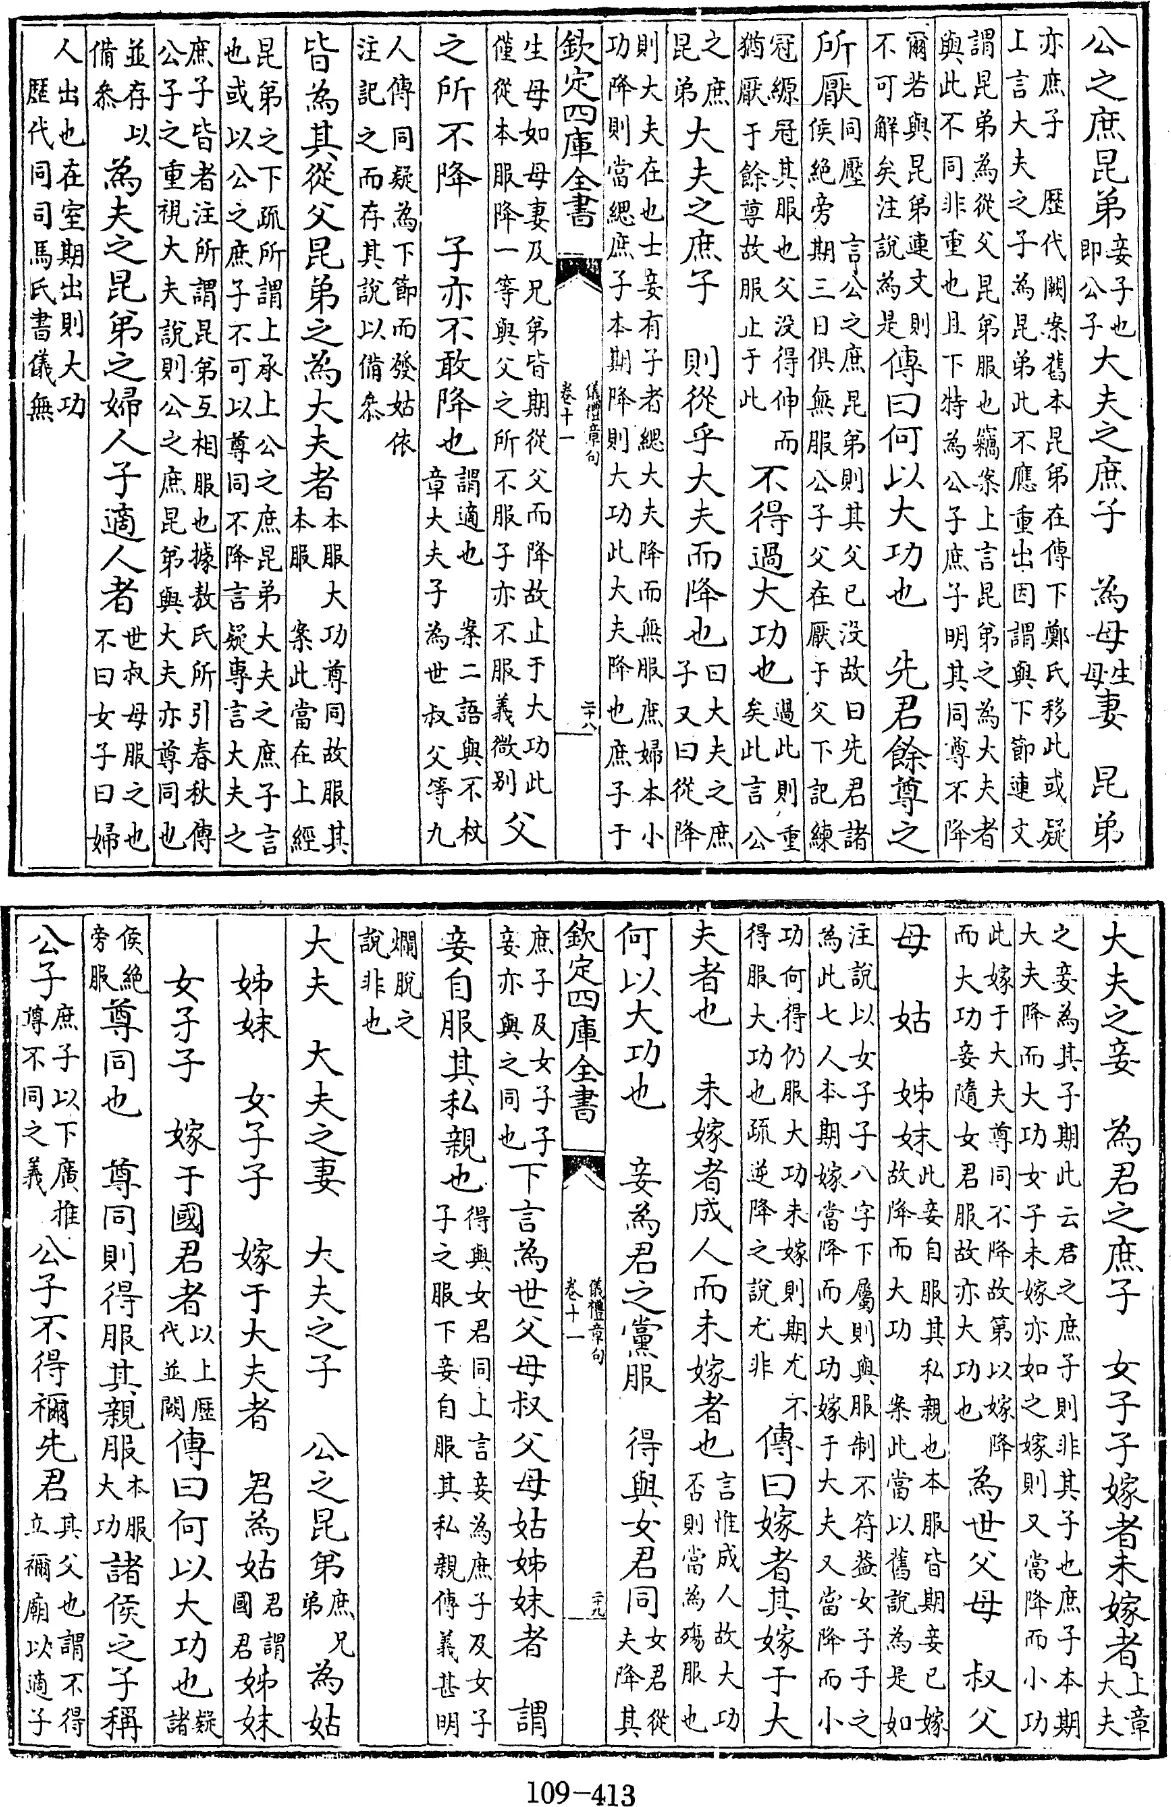 公之庶昆弟妾子也即公子大夫之庶子　為母生母妻　昆弟
亦庶子　歷代闕案舊本昆弟在傳下鄭氏移此或疑
上言大夫之子為昆弟此不應重出因謂與下節連文
謂昆弟為從父昆弟服也竊案上言昆弟之為大夫者
與此不同非重也且下特為公子庶子明其同尊不降
爾若與昆弟連文則不可解矣注說為是傳曰何以大功也　先君餘尊之
所厭同壓　言公之庶昆弟則其父已没故曰先君諸侯絶旁期三日俱無服公子父在厭于父下記練
冠縓冠其服也父没得伸而猶厭于餘尊故服止于此不得過大功也過此則重矣此言公
之庶昆弟大夫之庶子　則從乎大夫而降也曰大夫之庶子又曰從降
則大夫在也士妾有子者緦大夫降而無服庶婦本小
功降則當緦庶子本期降則大功此大夫降也庶子于
欽定四庫全書　儀禮章句卷十一　二十八
生母如母妻及兄弟皆期從父而降故止于大功此僅從本服降一等與父之所不服子亦不服義微别父
之所不降　子亦不敢降也謂適也　案二語與不杖章大夫子為世叔父等九
人傳同疑為下節而發姑依
注記之而存其說以備叅
皆為其從父昆弟之為大夫者本服大功尊同故服其本服　案此當在上經
昆弟之下疏所謂上承上公之庶昆弟大夫之庶子言
也或以公之庶子不可以尊同不降言疑專言大夫之
庶子皆者注所謂昆弟互相服也據敖氏所引春秋傳
公子之重視大夫說則公之庶昆弟與大夫亦尊同也
並存以備叅為夫之昆弟之婦人子適人者世叔母服之也不曰女子曰婦
人出也在室期出則大功
歷代同司馬氏書儀無
大夫之妾　為君之庶子　女子子嫁者未嫁者上章大夫
之妾為其子期此云君之庶子則非其子也庶子本期
大夫降而大功女子未嫁亦如之嫁則又當降而小功
此嫁于大夫尊同不降故第以嫁降而大功妾隨女君服故亦大功也為世父母　叔父
母　姑　姊妹此妾自服其私親也本服皆期妾已嫁故降而大功　案此當以舊說為是如
注說以女子子八字下屬則與服制不符葢女子子之
為此七人本期嫁當降而大功嫁于大夫又當降而小
功何得仍服大功未嫁則期尤不得服大功也疏逆降之說尤非傳曰嫁者其嫁于大
夫者也　未嫁者成人而未嫁者也言惟成人故大功否則當為殤服也
何以大功也　妾為君之黨服　得與女君同女君從夫降其
欽定四庫全書　儀禮章句卷十一　二十九
庶子及女子子妾亦與之同也下言為世父母叔父母姑姊妹者　謂
妾自服其私親也得與女君同上言妾為庶子及女子子之服下妾自服其私親傳義甚明
爛脫之
說非也
大夫　大夫之妻　大夫之子　公之昆弟庶兄弟為姑
姊妹　女子子　嫁于大夫者　君為姑君謂國君姊妹
女子子　嫁于國君者以上歷代並闕傳曰何以大功也疑諸
侯絶旁服尊同也　尊同則得服其親服本服大功諸侯之子稱
公子庶子以下廣推尊不同之義公子不得禰先君其父也謂不得立禰廟以適子
109-413